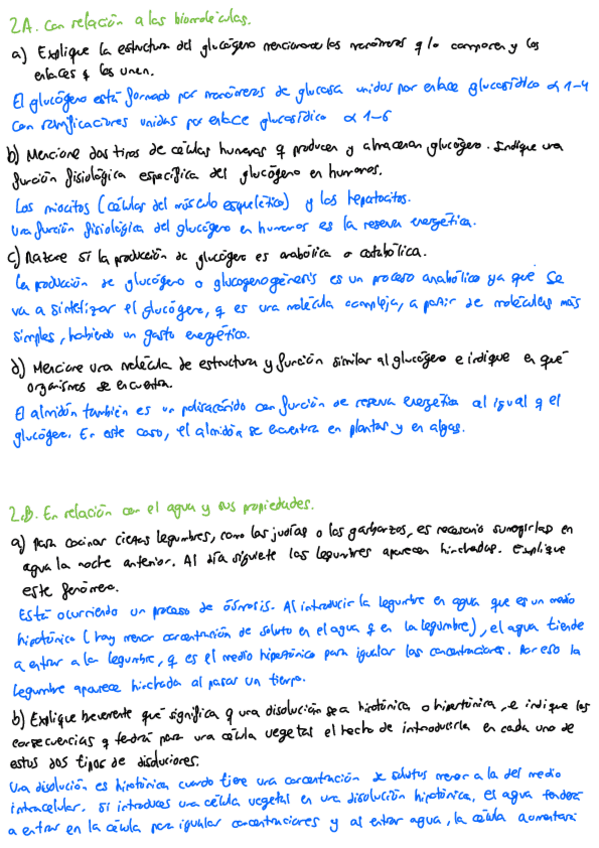 2.A. Con relación a las biomoléculas.
a) Explique la estructura del glucógeno mencionando los monómeros q lo componen y los
enlaces q los unen.
El glucógeno está formado por monómeros de glucosa unidos por enlace glucosídico α 1-4
con ramificaciones unidas por enlace glucosídico α 1-6
b) Mencione dos tipos de células humanas q producen y almacenan glucógeno. Indique una
función fisiológica específica del glucógeno en humanos.
Los miocitos (células del músculo esquelético) y los hepatocitos.
Una función fisiológica del glucógeno en humanos es la reserva energética.
c) Razone si la producción de glucógeno es anabólica o catabólica.
La producción de glucógeno o glucogenogénesis es un proceso anabólico ya que se
va a sintetizar el glucógeno, q es una molécula compleja, a partir de moléculas más
simples, habiendo un gasto energético.
d) Mencione una molécula de estructura y función similar al glucógeno e indique en qué
organismos se encuentra.
El almidón también es un polisacárido con función de reserva energética al igual q el
glucógeno. En este caso, el almidón se encuentra en plantas y en algas.
2.B. En relación con el agua y sus propiedades.
a) Para cocinar ciertas legumbres, como las judías o los garbanzos, es necesario sumergirlas en
agua la noche anterior. Al día siguiente las legumbres aparecen hinchadas. Explique
este fenómeno.
Está ocurriendo un proceso de ósmosis. Al introducir la legumbre en agua que es un medio
hipotónico (hay menor concentración de soluto en el agua q en la legumbre), el agua tiende
a entrar a la legumbre, q es el medio hipertónico para igualar las concentraciones. Por eso la
legumbre aparece hinchada al pasar un tiempo.
b) Explique brevemente qué significa q una disolución sea hipotónica o hipertónica, e indique las
consecuencias q tendrá para una célula vegetal el hecho de introducirla en cada uno de
estos dos tipos de disoluciones.
Una disolución es hipotónica cuando tiene una concentración de solutos menor a la del medio
intracelular. Si introduces una célula vegetal en una disolución hipotónica, el agua tenderá
a entrar en la célula para igualar concentraciones y al entrar agua, la célula aumentará